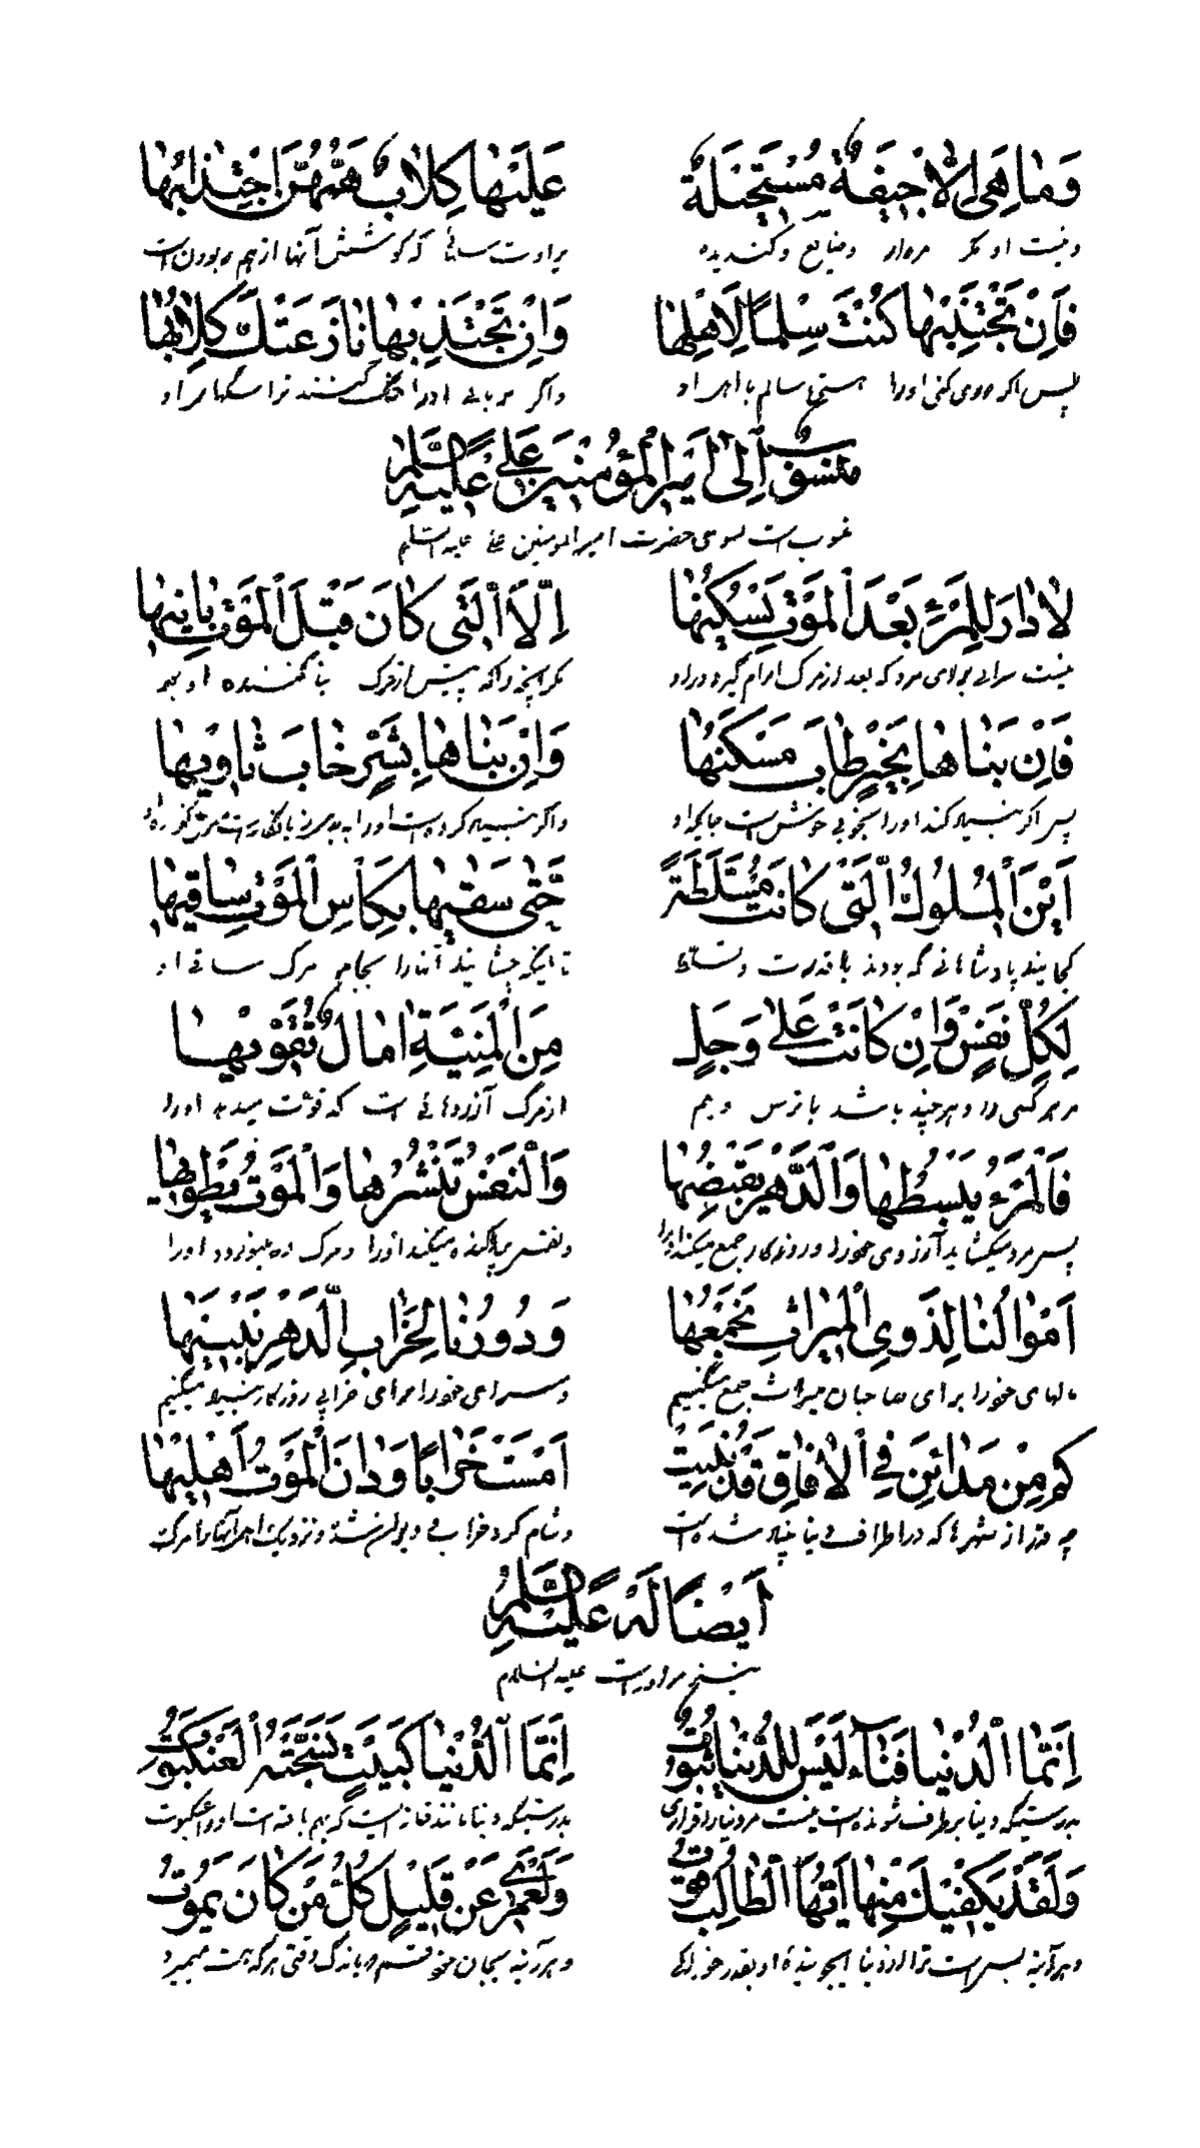 وَمَا هِیَ اِلَّا جِیفَةٌ مُسْتَحِیلَةٌ عَلَیْهَا کِلَابٌ هَمُّهُنَّ اجْتِذَابُهَا
ونیست او مکر مردار وضایع وکندیده براوست سکانی که کوشش آنها از هم ربودن است
فَاِنْ تَجْتَنِبْهَا کُنْتَ سِلْمًا لِاَهْلِهَا وَاِنْ تَجْتَذِبْهَا نَازَعَتْكَ کِلَابُهَا
پس اکر دوری کنی اورا هستی سالم با اهل او واکر بربائی اورا جنگ کنند ترا سکهای او
مَنْسُوبٌ اِلٰی اَمِیرِ الْمُؤْمِنِینَ عَلِی عَلَیْهِ السَّلَامُ
منسوب است بسوی حضرت امیرالمومنین علی علیه السّلام
لَا دَارَ لِلْمَرْءِ بَعْدَ الْمَوْتِ یَسْکُنُهَا اِلَّا الَّتِی کَانَ قَبْلَ الْمَوْتِ بَانِیهَا
نیست سرائی برای مرد که بعد از مرک آرام گیرد در او مکر آنچه را که پیش از مرک بنا کننده او بود
فَاِنْ بَنَاهَا بِخَیْرٍ طَابَ مَسْکَنُهَا وَاِنْ بَنَاهَا بِشَرٍّ خَابَ ثَاوِیهَا
پس اکر بنیاد کند اورا بخوبی خوش است جایکاه او واکر بنیاد کرده است اورا به بد
اَیْنَ الْمُلُوكُ الَّتِی کَانَتْ مُسَلَّطَةً حَتّٰی سَقٰیهَا بِکَاْسِ الْمَوْتِ سَاقِیهَا
کجایند پادشاهانی که بودند با قدرت وتسلّط تا اینکه چشانید آنها را بجام مرک ساقی او
لِکُلِّ نَفْسٍ وَاِنْ کَانَتْ عَلٰی وَجَلٍ مِنَ الْمَنِیَّةِ اٰمَالٌ تُقَوِّیهَا
مر هر کسی را وهرچند باشد با ترس وبیم از مرک آرزوهائی است که قوّت میدهد اورا
فَالْمَرْءُ یَبْسُطُهَا وَالدَّهْرُ یَقْبِضُهَا وَالنَّفْسُ تَنْشُرُهَا وَالْمَوْتُ یَطْوِیهَا
پس مرد میکشاید آرزوی خودرا وروزکار جمع میکند ونفس پراکنده میکند اورا ومرک در می‌نوردد اورا
اَمْوَالُنَا لِذَوِی الْمِیرَاثِ نَجْمَعُهَا وَدُورُنَا لِخَرَابِ الدَّهْرِ نَبْنِیهَا
مالهای خودرا برای صاحبان میراث جمع میکنیم وسرای خودرا برای خرابی روزکار بنیاد میکنیم
کَمْ مِنْ مَدَائِنَ فِی الْاٰفَاقِ قَدْ بُنِیَتْ اَمْسَتْ خَرَابًا وَدَانَ الْمَوْتُ اَهْلِیهَا
چه قدر از شهرها که در اطراف دنیا بنیاد شده است وشام کرد خراب
اَیْضًا لَهُ عَلَیْهِ السَّلَامُ
نیز مراوراست علیه السّلام
اِنَّمَا الدُّنْیَا فَنَاءٌ لَیْسَ لِلدُّنْیَا ثُبُوتٌ اِنَّمَا الدُّنْیَا کَبَیْتٍ نَسَجَتْهُ الْعَنْکَبُوتُ
بدرستیکه دنیا برطرف شونده است نیست مر دنیا را قراری بدرستیکه دنیا مانند خانه ایست که بهم بافته است اورا عنکبوت
وَلَقَدْ یَکْفِیكَ مِنْهَا اَیُّهَا الطَّالِبُ قُوتٌ وَلَعَمْرِی عَنْ قَلِیلٍ کُلُّ مَنْ کَانَ یَمُوتُ
وهرآینه بس است ترا از دنیا ایجوینده او بقدر خوراکی وهرآینه بجان خود قسم در اندک وقتی هرکه هست میمیرد